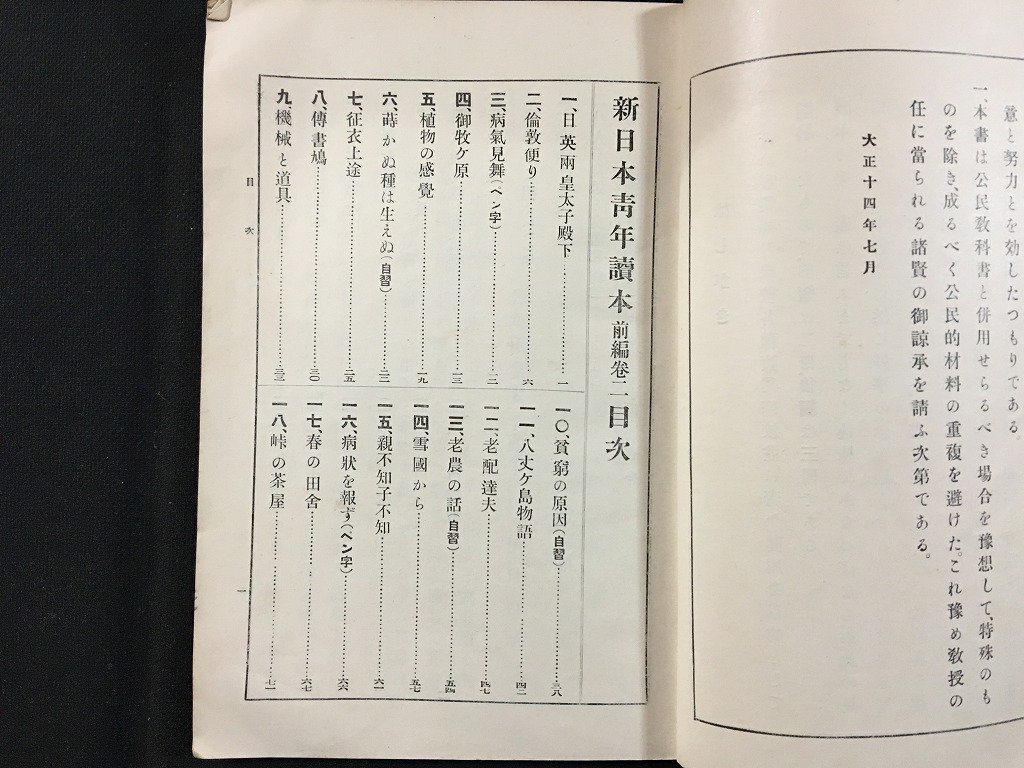 意と努力とを効したつもりである。
一、本書は公民敎科書と併用せらるべき場合を豫想して、特殊のも
のを除き、成るべく公民的材料の重複を避けた。これ豫め敎授の
任に當られる諸賢の御諒承を請ふ次第である。
大正十四年七月
新日本靑年讀本 前編卷二 目次
一、日英兩皇太子殿下……一
二、倫敦便り……六
三、病氣見舞(ペン字)……一二
四、御牧ケ原……一三
五、植物の感覺……一九
六、蒔かぬ種は生えぬ(自習)……二二
七、征衣上途……二五
八、傳書鳩……三〇
九、機械と道具……三三
一〇、貧窮の原因(自習)……三八
一一、八丈ケ島物語……四二
一二、老配達夫……四七
一三、老農の話(自習)……五四
一四、雪國から……五七
一五、親不知子不知……六一
一六、病狀を報ず(ペン字)……六六
一七、春の田舍……六七
一八、峠の茶屋……七一
目次
一